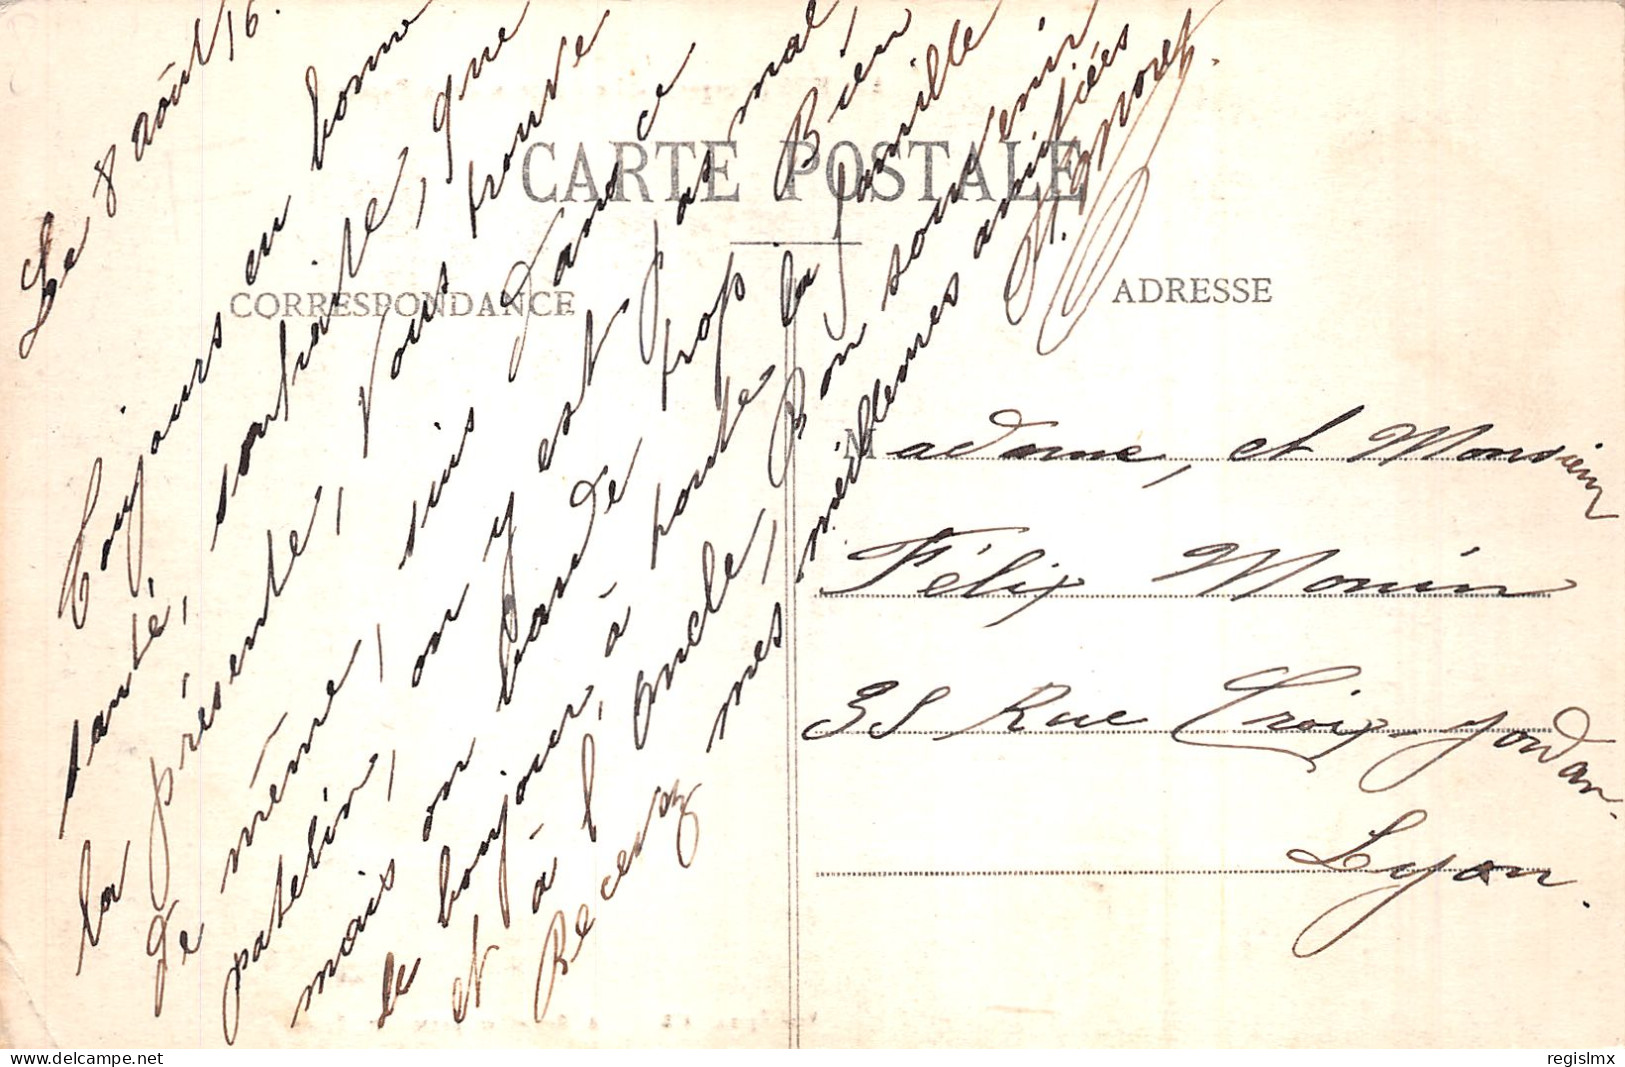 CARTE POSTALE
CORRESPONDANCE
ADRESSE
Le 8 août 16.
Toujours en bonne
santé, souhaite, que
la présente, vous trouve
de même, suis dans ce
patelin, on y est pas mal,
mais on barde trop Bien
le bonjour, à toute la famille
et à l'oncle, Bon souvenir
Recevez mes meilleures amitiées
Madame, et Monsieur
Félix Monin
38 Rue Croix-Jordan.
Lyon.
regislmx
delcampe.net